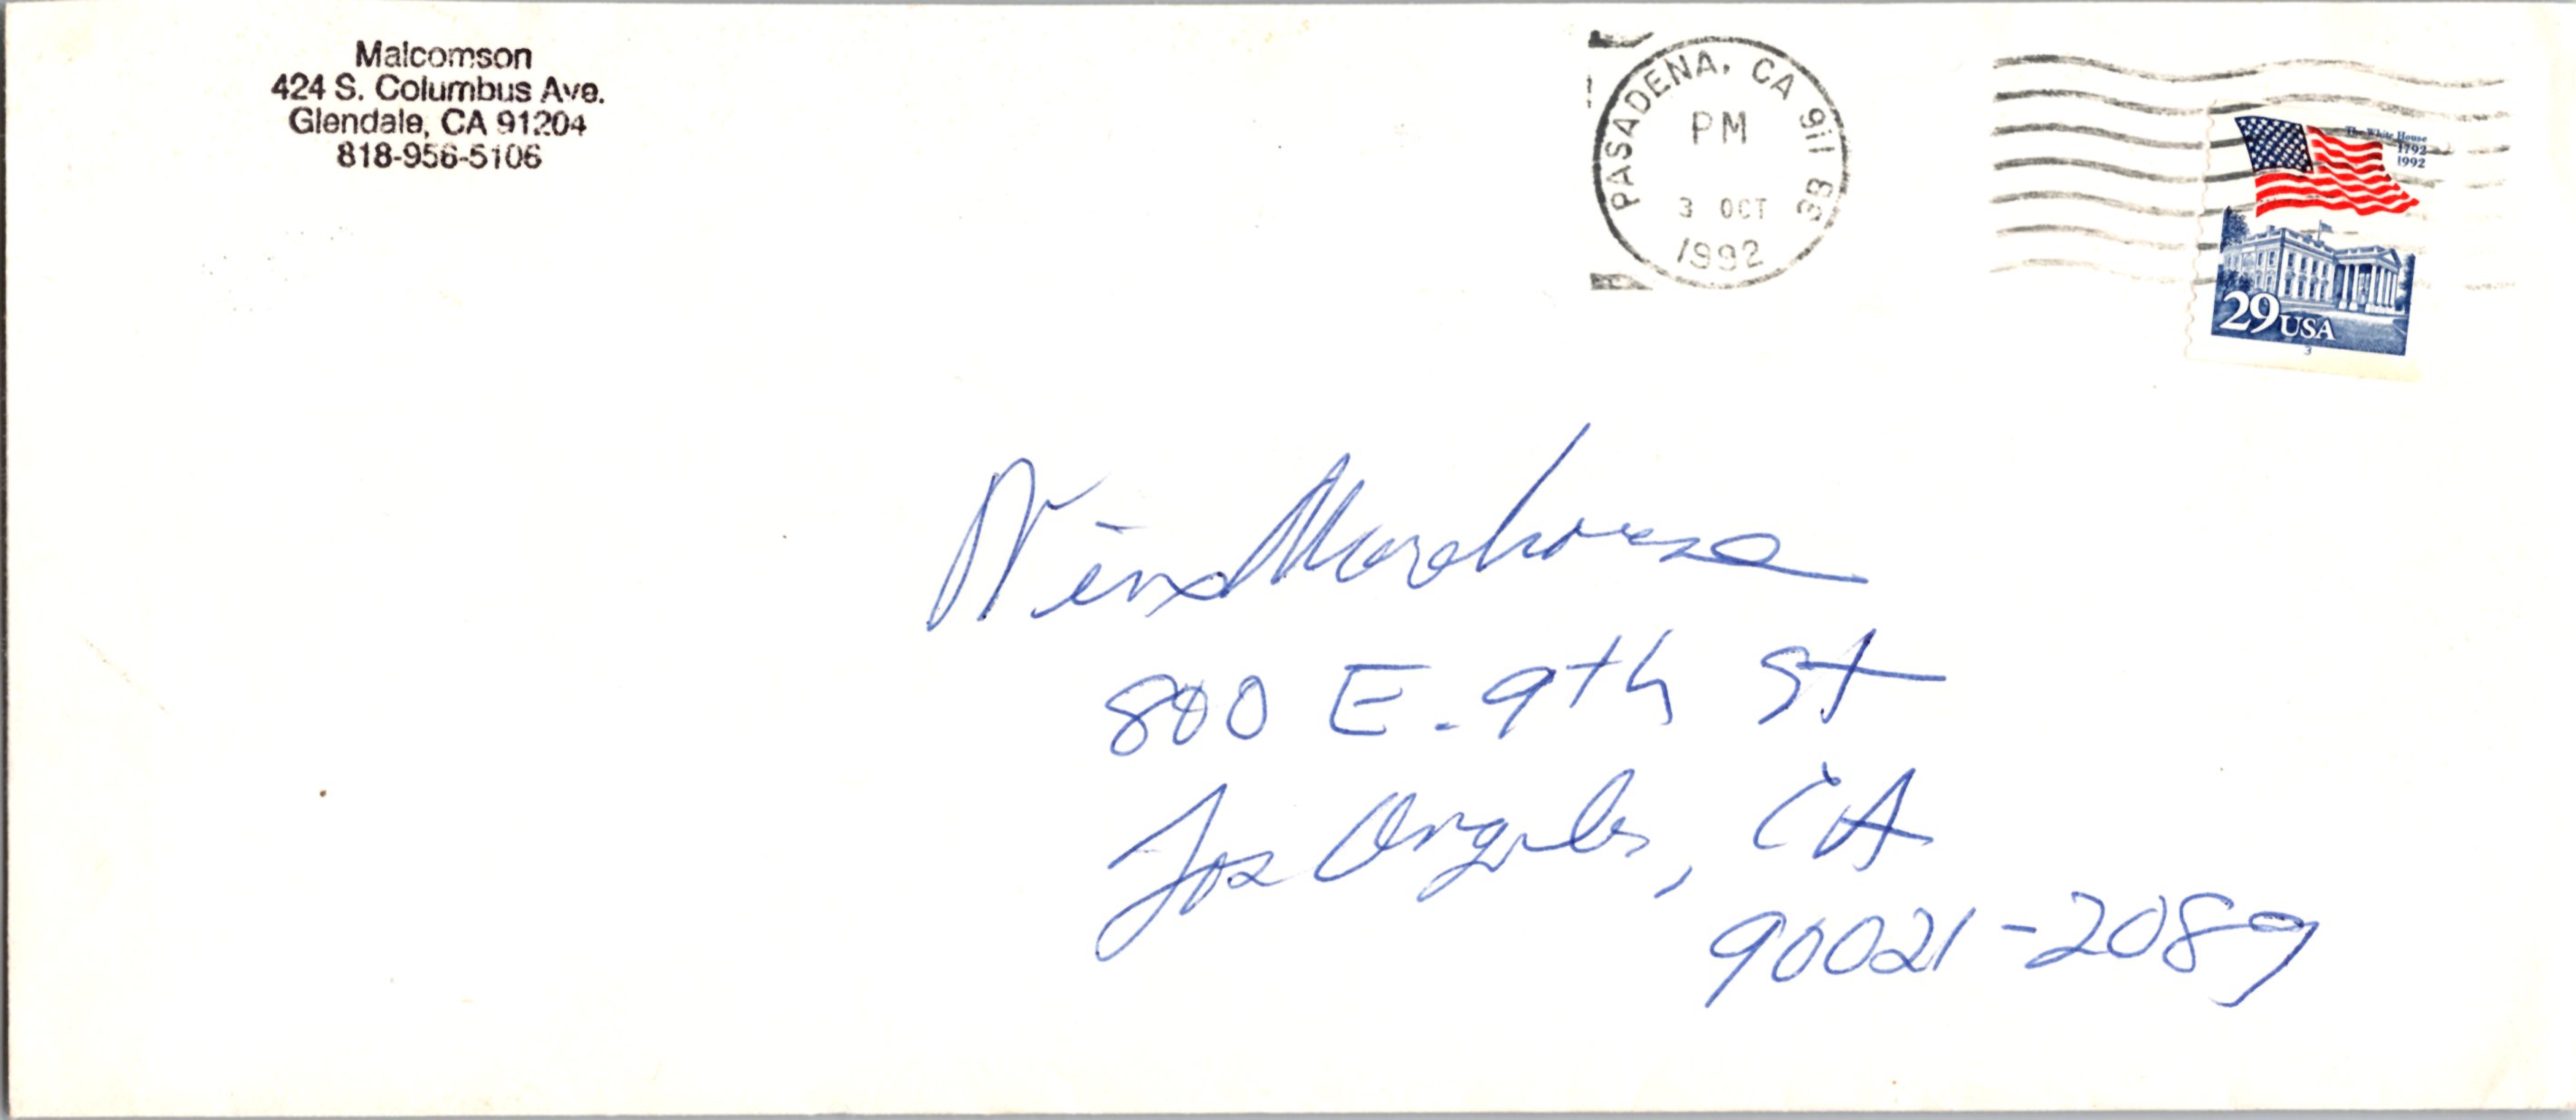 Malcomson
424 S. Columbus Ave.
Glendale, CA 91204
818-956-5106
PASADENA, CA 911 BB
PM
3 OCT
1992
The White House
1792
1992
29 USA
3
Nina Morehouse
800 E. 9th St
Los Angeles, CA
90021-2089